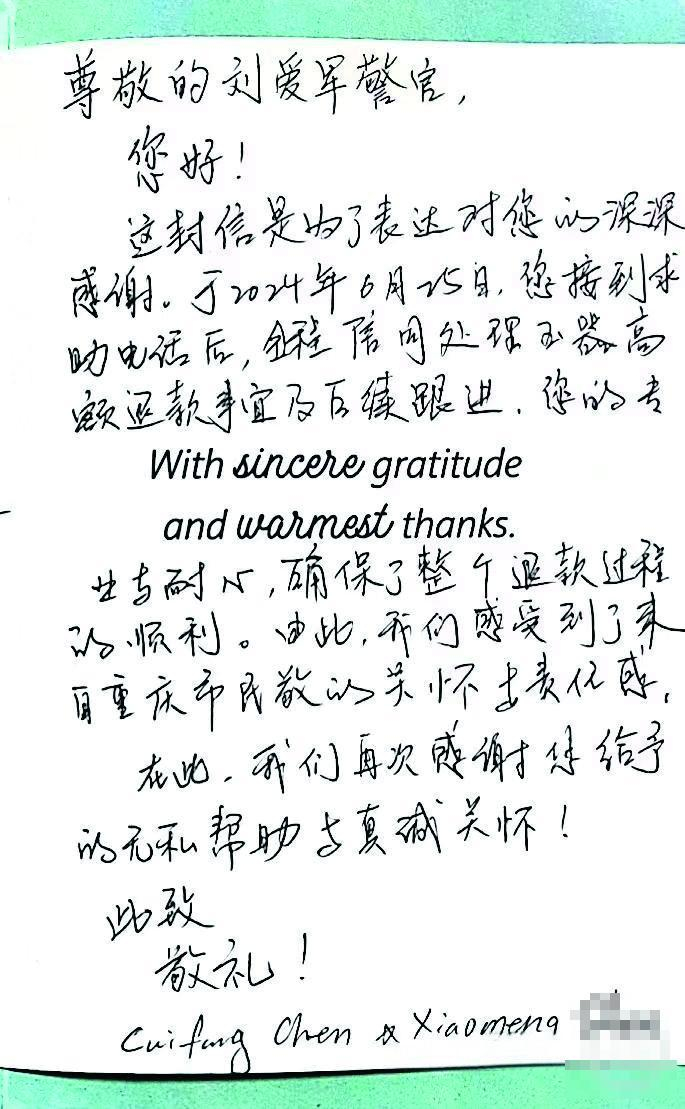 尊敬的刘爱军警官，
您好！
这封信是为了表达对您的深深
感谢。于2024年6月25日，您接到求
助电话后，全程陪同处理玉器高
额退款事宜及后续跟进．您的专
With sincere gratitude
and warmest thanks.
业与耐心，确保了整个退款过程
的顺利。由此，我们感受到了来
自重庆市民敬的关怀与责任感．
在此，我们再次感谢您给予
的无私帮助与真诚关怀！
此致
敬礼！
Cuifang Chen & Xiaomeng